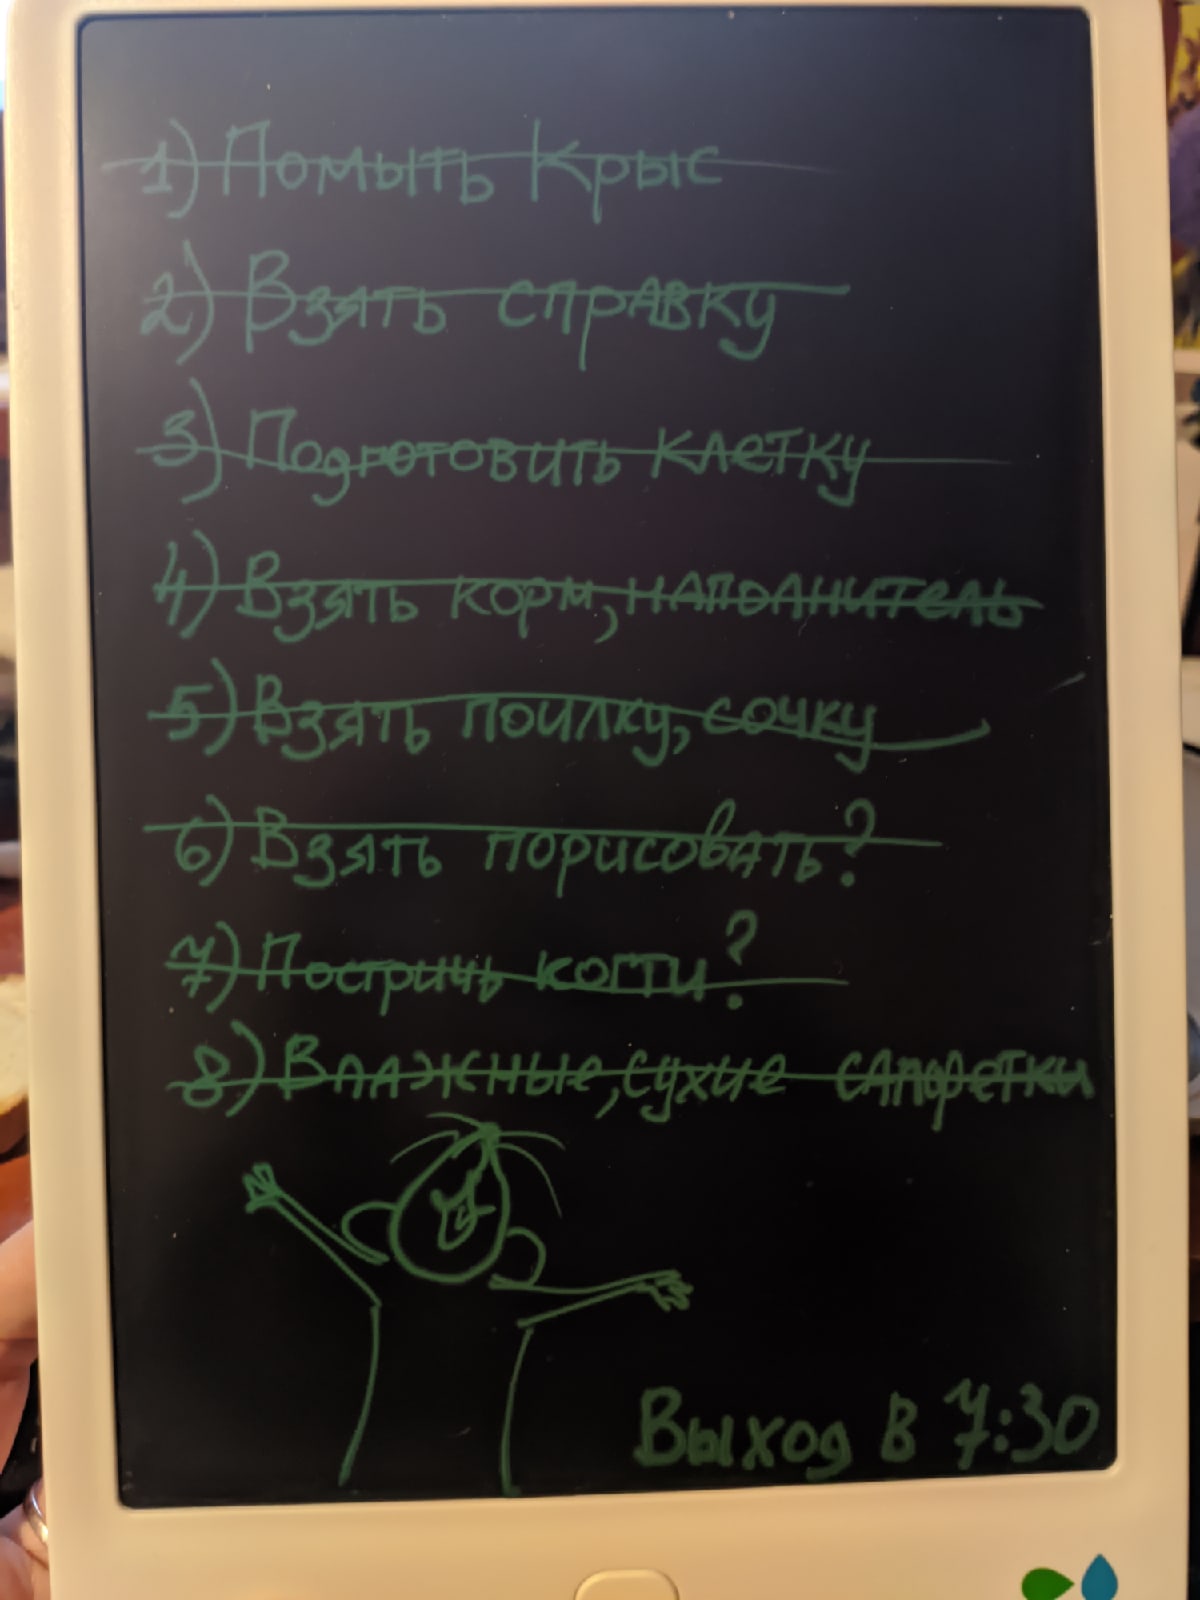 1) Помыть Крыс
2) Взять справку
3) Подготовить клетку
4) Взять корм, наполнитель
5) Взять поилку, сочку
6) Взять порисовать?
7) Постричь когти?
8) Влажные, сухие салфетки
Выход в 7:30